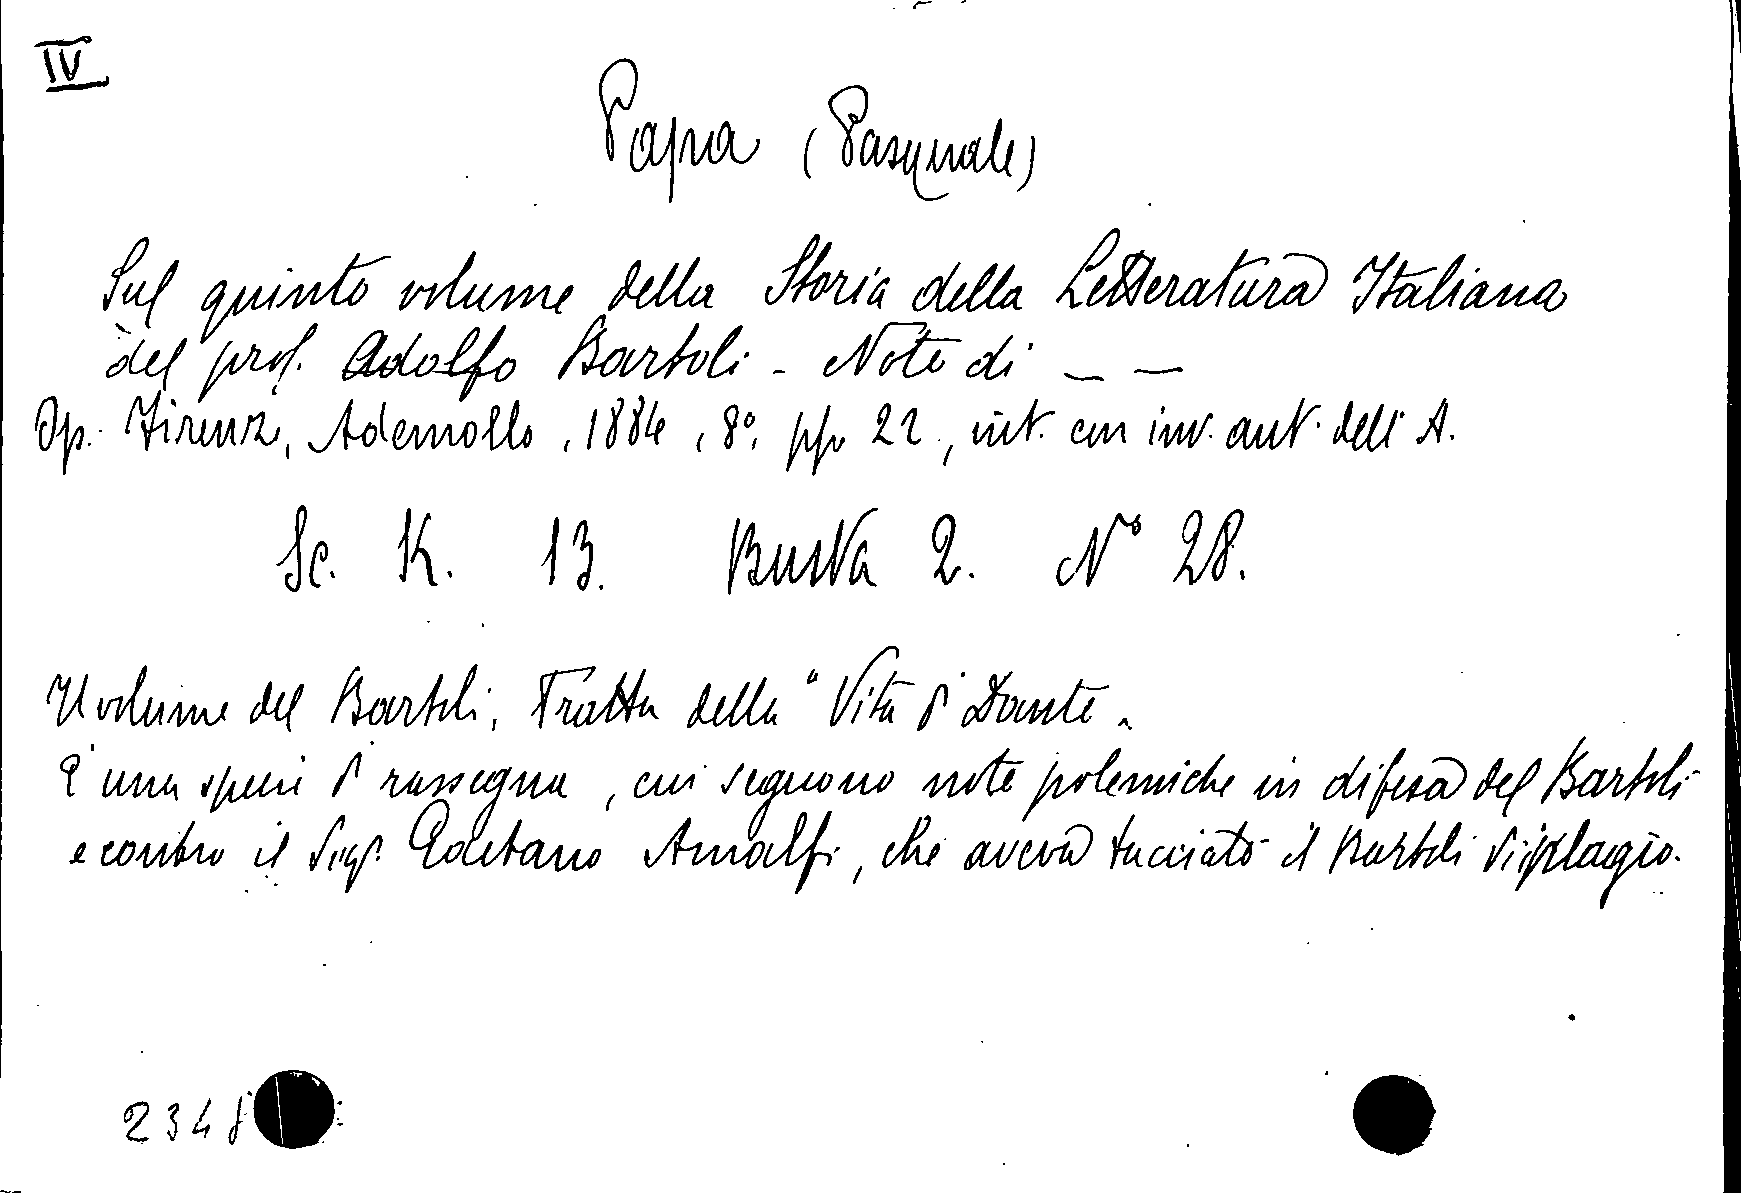 IV
Papa (Pasquale)
Sul quinto volume della Storia della Letteratura Italiana
del prof. Adolfo Bartoli - Note di — —
Op. Firenze, Ademollo, 1884, 8º, pp. 22, int. con inv. aut. dell'A.
Sc. K. 13. Busta 2. Nº 28.
Il volume del Bartoli, tratta della "Vita di Dante"
È una specie di rassegna, cui seguono note polemiche in difesa del Bartoli
e contro il Sigr. Gaetano Amalfi, che aveva tacciato il Bartoli di plagio.
234